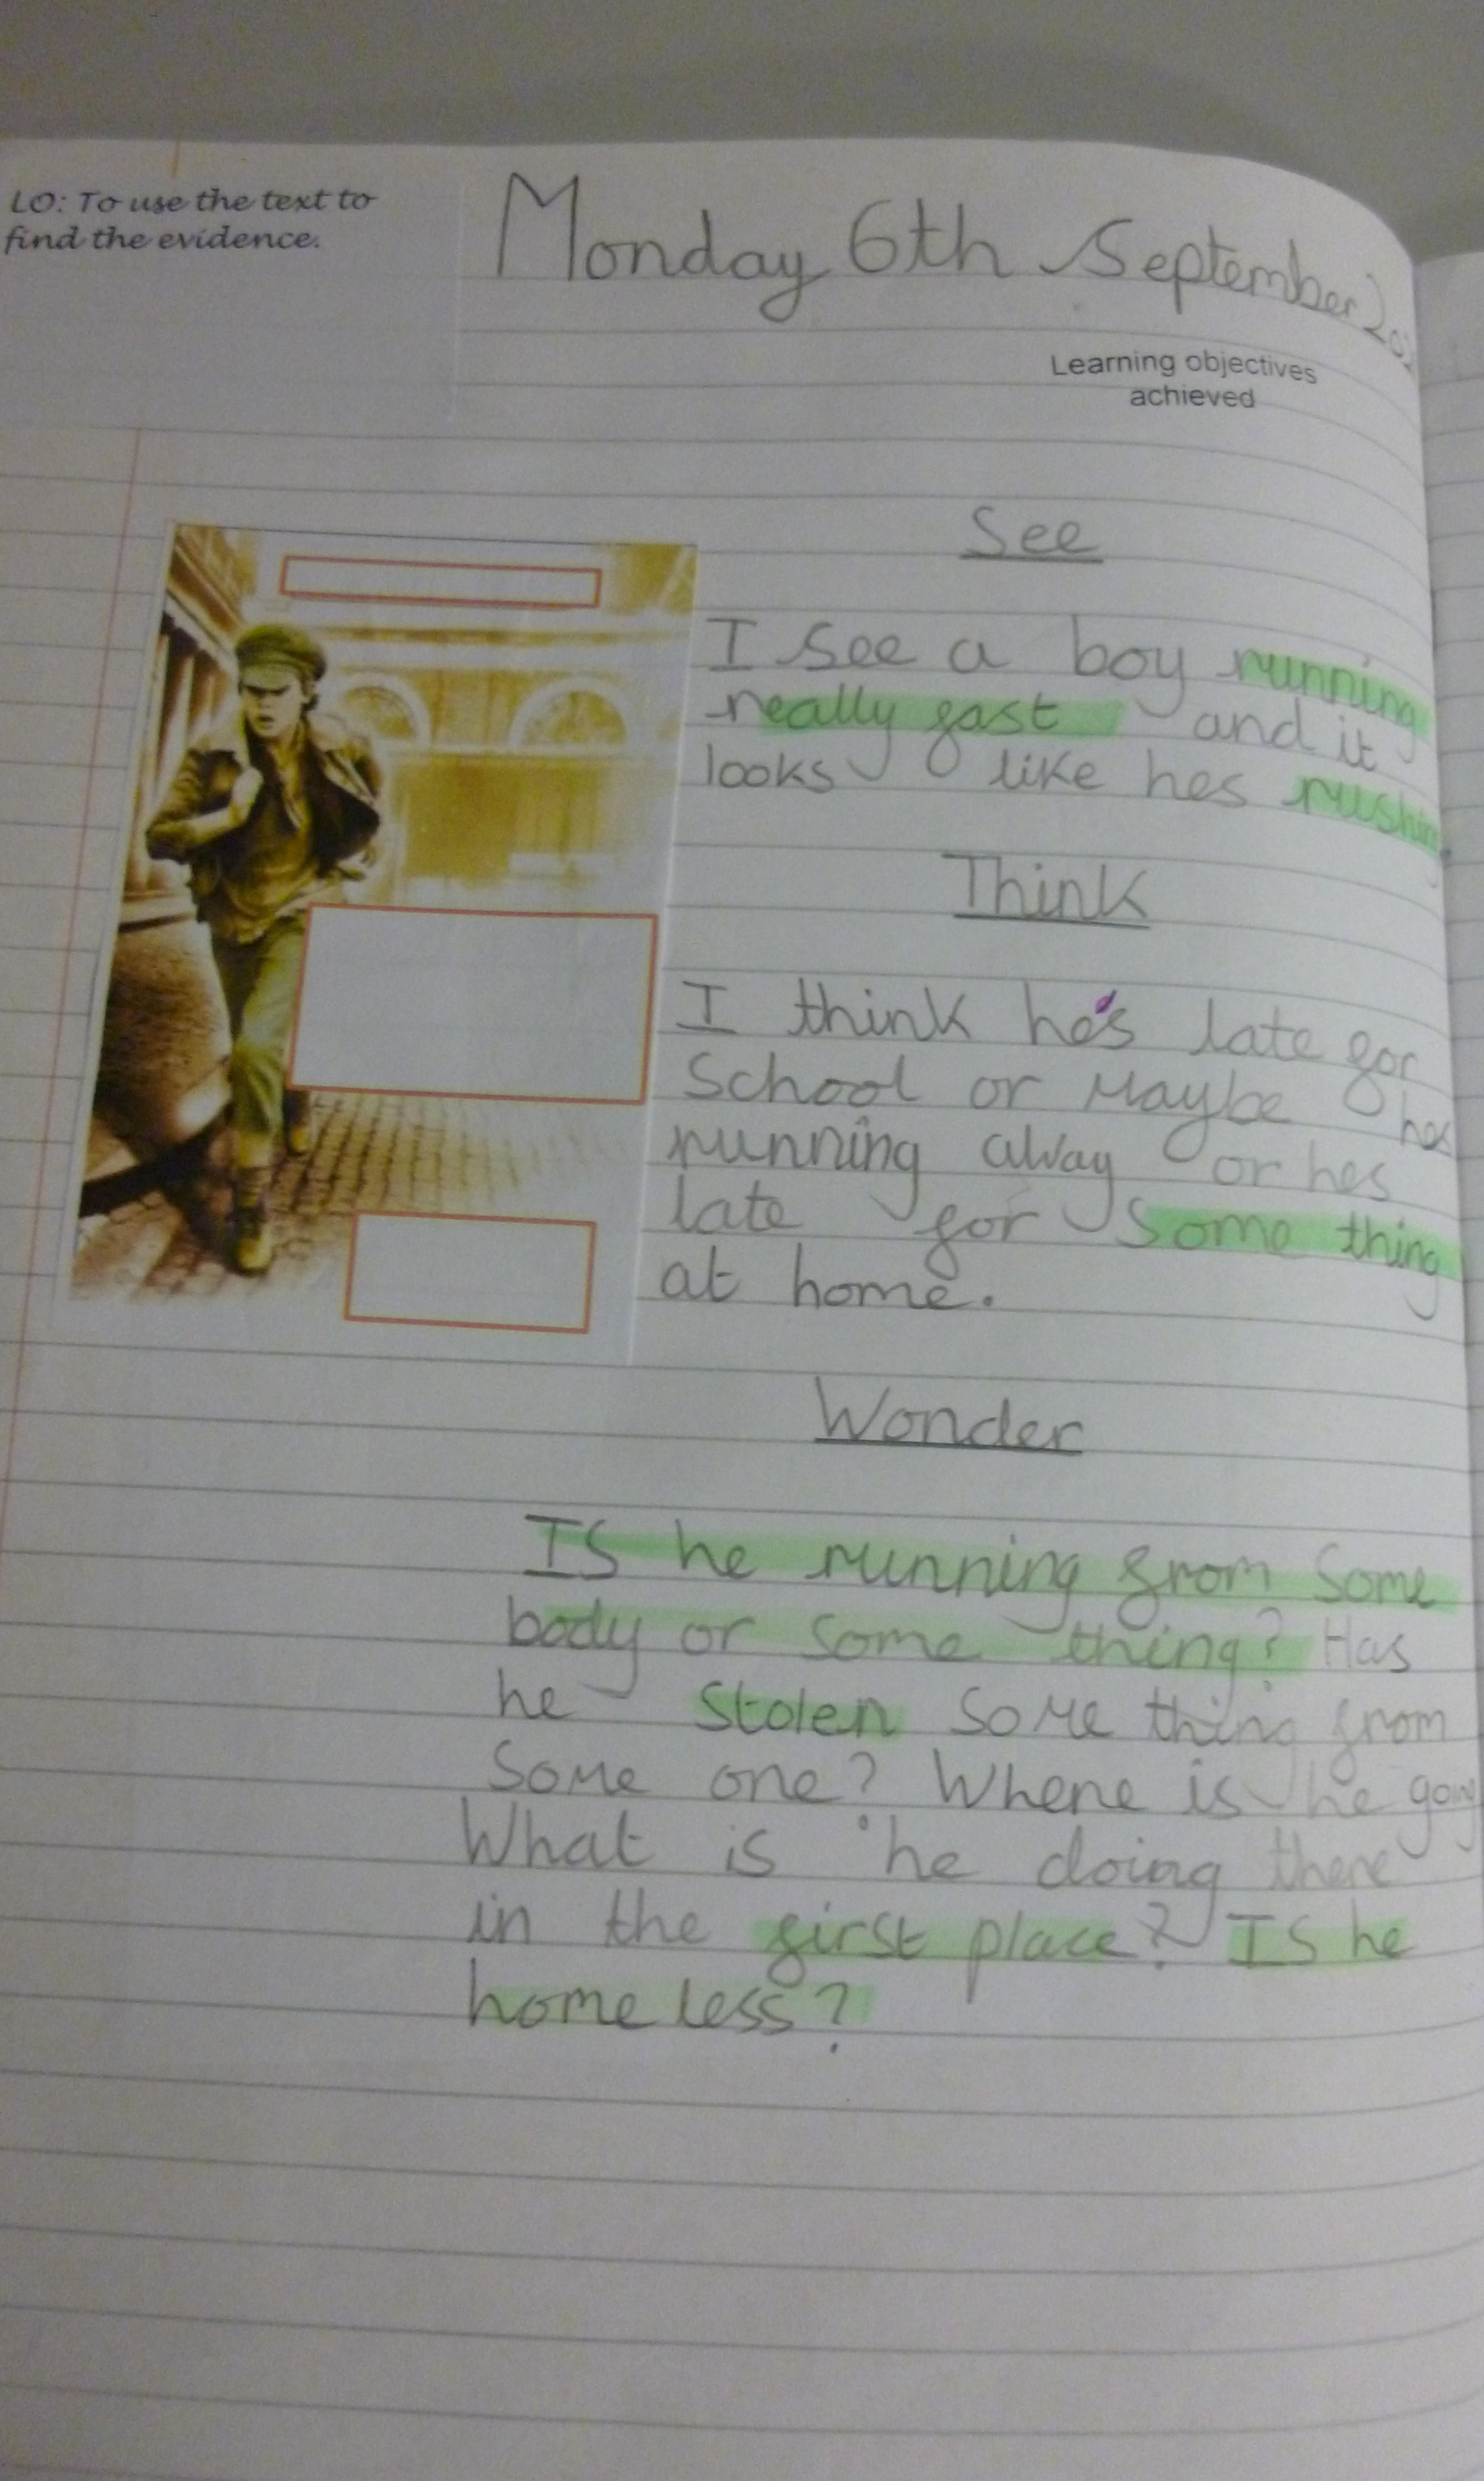 LO: To use the text to
find the evidence.
Monday 6th September
Learning objectives
achieved
See
I see a boy running
really fast and it
looks like hes rushing
Think
I think he's late for
School or Maybe hes
running away or hes
late for some thing
at home.
Wonder
Is he running from Some
body or some thing? Has
he stolen some thing from
Some one? Where is he going
What is he doing there
in the first place? Is he
home less?